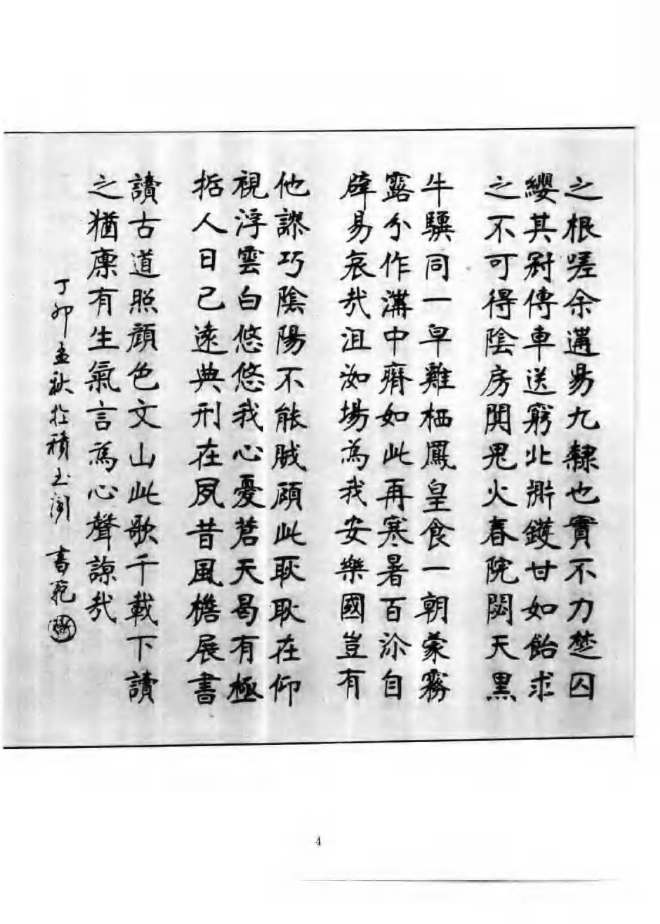 之根嗟余遘易九隸也實不力楚囚
纓其冠傳車送窮北鼎鑊甘如飴求
之不可得陰房闃鬼火春院閟天黑
牛驥同一皁雞栖鳳皇食一朝蒙霧
露分作溝中瘠如此再寒暑百沴自
辟易哀哉沮洳場為我安樂國豈有
他謬巧陰陽不能賊顧此耿耿在仰
視浮雲白悠悠我心憂蒼天曷有極
哲人日已遠典刑在夙昔風檐展書
讀古道照顏色文山此歌千載下讀
之猶廩有生氣言為心聲諒哉
丁卯孟秋於積玉閣 書範
4